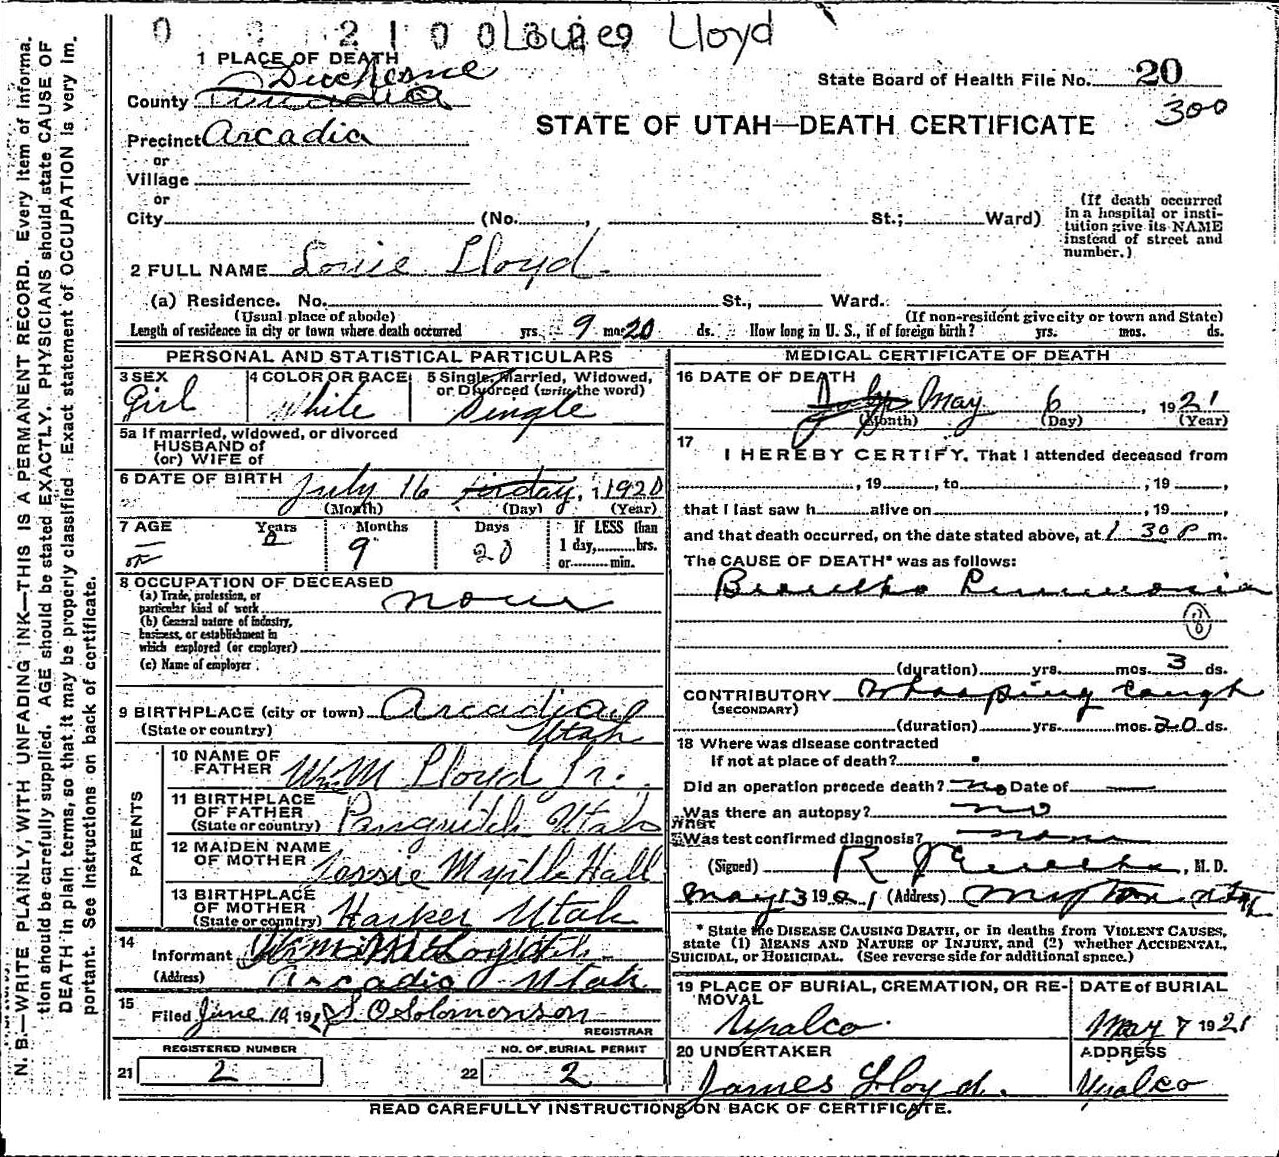 Lloyd
1 PLACE OF DEATH
Duchesne
State Board of Health File No. 20
300
County
STATE OF UTAH—DEATH CERTIFICATE
Precinct Arcadia
or
Village
or
City (No. , St.; Ward)
(If death occurred
in a hospital or insti-
tution give its NAME
instead of street and
number.)
2 FULL NAME Louie Lloyd.
(a) Residence. No. St., Ward.
(Usual place of abode) (If non-resident give city or town and State)
Length of residence in city or town where death occurred yrs. 9 mos. 20 ds. How long in U. S., if of foreign birth? yrs. mos. ds.
PERSONAL AND STATISTICAL PARTICULARS
3 SEX 4 COLOR OR RACE 5 Single, Married, Widowed,
or Divorced (write the word)
Girl White Single
5a If married, widowed, or divorced
HUSBAND of
(or) WIFE of
6 DATE OF BIRTH July 16 1920
(Month) (Day) (Year)
7 AGE Years Months Days If LESS than
1 day, hrs.
or min.
0 9 20
8 OCCUPATION OF DECEASED
(a) Trade, profession, or
particular kind of work none
(b) General nature of industry,
business, or establishment in
which employed (or employer)
(c) Name of employer
9 BIRTHPLACE (city or town) Arcadia
(State or country) Utah
PARENTS
10 NAME OF
FATHER Wm M Lloyd Jr.
11 BIRTHPLACE
OF FATHER
(State or country) Panguitch Utah
12 MAIDEN NAME
OF MOTHER Jessie Myrtle Hall
13 BIRTHPLACE
OF MOTHER
(State or country) Harker Utah
14
Informant
(Address) Arcadia Utah
15
Filed June 10, 192 S. O. Solomonson
REGISTRAR
REGISTERED NUMBER NO. OF BURIAL PERMIT
21 2 22 2
MEDICAL CERTIFICATE OF DEATH
16 DATE OF DEATH
July May 6, 1921
(Month) (Day) (Year)
17
I HEREBY CERTIFY. That I attended deceased from
, 19 , to , 19 ,
that I last saw h alive on , 19 ,
and that death occurred, on the date stated above, at 1 30 P m.
The CAUSE OF DEATH* was as follows:
Broncho Pneumonia
(duration) yrs. mos. 3 ds.
CONTRIBUTORY Whooping Cough
(SECONDARY)
(duration) yrs. mos. 20 ds.
18 Where was disease contracted
If not at place of death?
Did an operation precede death? no Date of
Was there an autopsy? no
What
Was test confirmed diagnosis? none
(Signed) R , M. D.
May 13 1921 (Address) Myton Utah
* State the DISEASE CAUSING DEATH, or in deaths from VIOLENT CAUSES,
state (1) MEANS AND NATURE OF INJURY, and (2) whether ACCIDENTAL,
SUICIDAL, or HOMICIDAL. (See reverse side for additional space.)
19 PLACE OF BURIAL, CREMATION, OR RE-
MOVAL DATE of BURIAL
Upalco. May 7 1921
20 UNDERTAKER ADDRESS
James Lloyd. Upalco
READ CAREFULLY INSTRUCTIONS ON BACK OF CERTIFICATE.
N. B.—WRITE PLAINLY, WITH UNFADING INK—THIS IS A PERMANENT RECORD. Every item of informa-
tion should be carefully supplied. AGE should be stated EXACTLY. PHYSICIANS should state CAUSE OF
DEATH in plain terms, so that it may be properly classified. Exact statement of OCCUPATION is very im-
portant. See instructions on back of certificate.